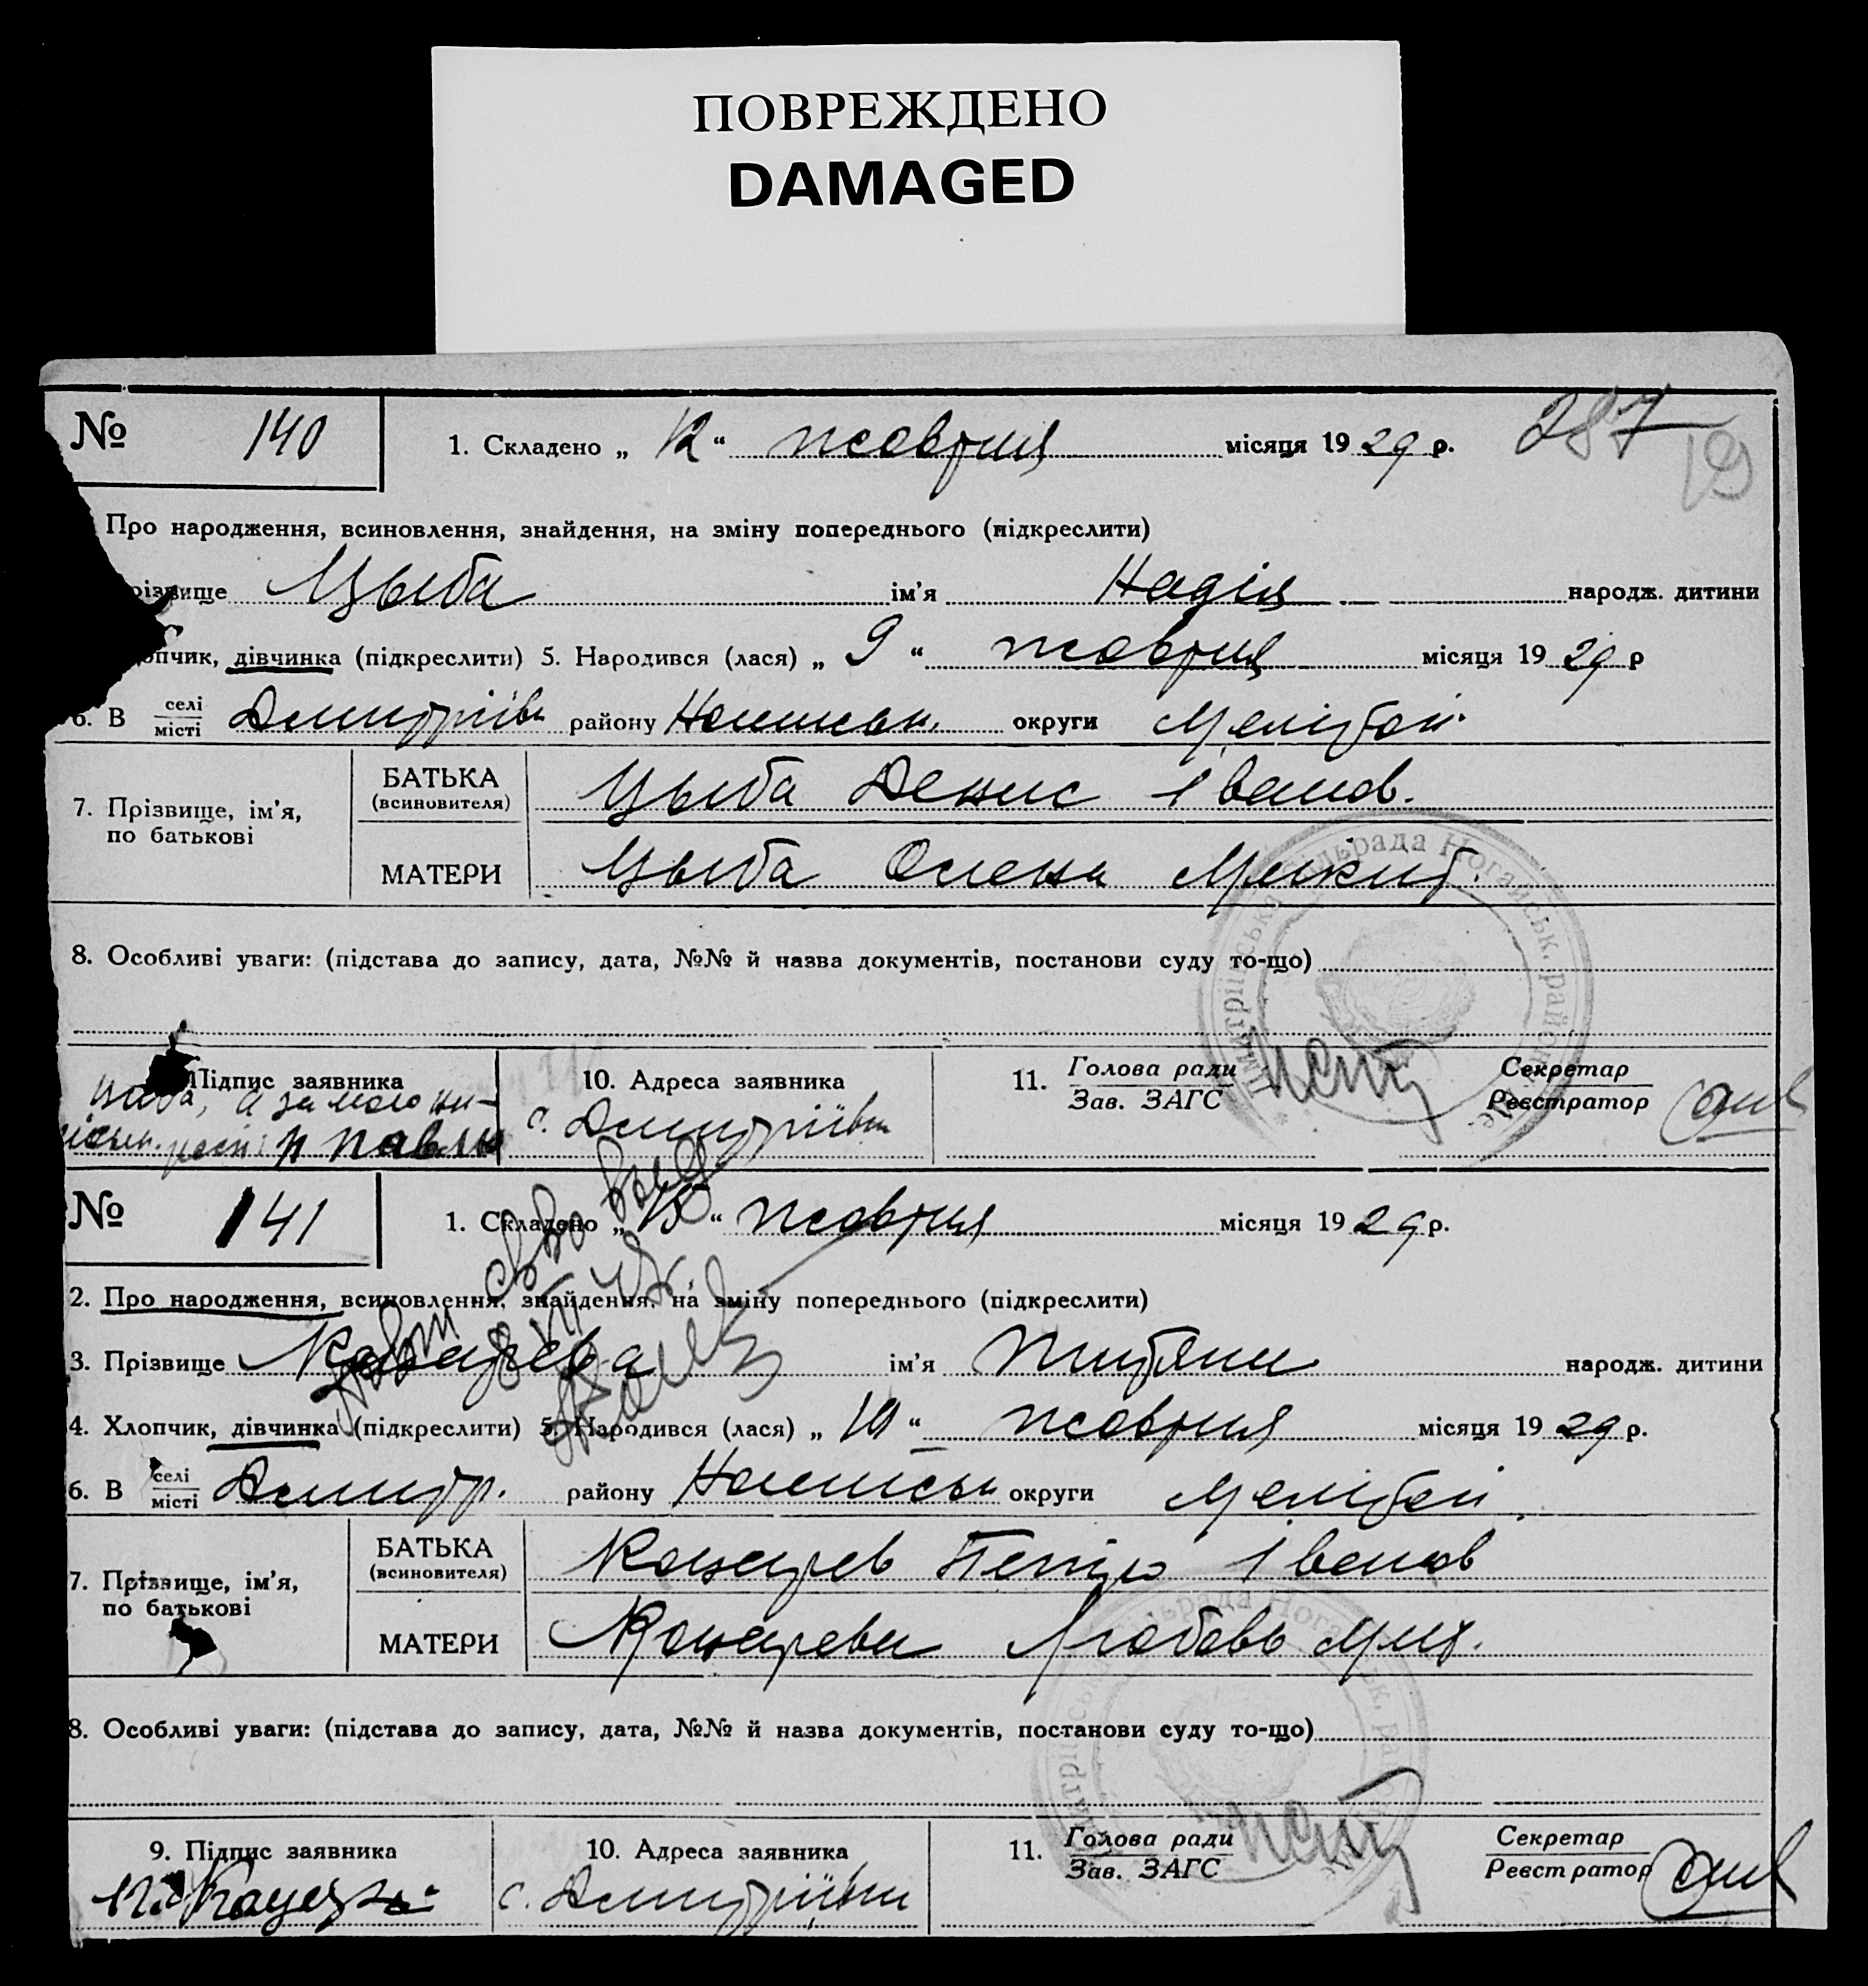 ПОВРЕЖДЕНО
DAMAGED
№ 140 1. Складено „ 12 “ жовтня місяця 19 29 р. 287 19
Про народження, всиновлення, знайдення, на зміну попереднього (підкреслити)
різвище Цыба ім'я Надія народж. дитини
опчик, дівчинка (підкреслити) 5. Народився (лася) „ 9 “ жовтня місяця 19 29 р
6. В селі місті Дмитріівн району округи Мелітоп.
7. Прізвище, ім'я, по батькові БАТЬКА (всиновителя) Цыба Денис Іванов.
МАТЕРИ Цыба Олена Микит.
8. Особливі уваги: (підстава до запису, дата, №№ й назва документів, постанови суду то-що)
Підпис заявника 10. Адреса заявника 11. Голова ради Зав. ЗАГС Секретар Реєстратор
Цыба, а за його с. Дмитріівка
№ 141 1. Складено „ 15 “ жовтня місяця 19 29 р.
2. Про народження, всиновлення, знайдення, на зміну попереднього (підкреслити)
3. Прізвище ім'я народж. дитини
4. Хлопчик, дівчинка (підкреслити) 5. Народився (лася) „ 10 “ жовтня місяця 19 29 р.
6. В селі місті Дмитр. району округи Мелітоп
7. Прізвище, ім'я, по батькові БАТЬКА (всиновителя) Петро Іванов
МАТЕРИ Любовь Мих.
8. Особливі уваги: (підстава до запису, дата, №№ й назва документів, постанови суду то-що)
9. Підпис заявника 10. Адреса заявника 11. Голова ради Зав. ЗАГС Секретар Реєстратор
с. Дмитріівка